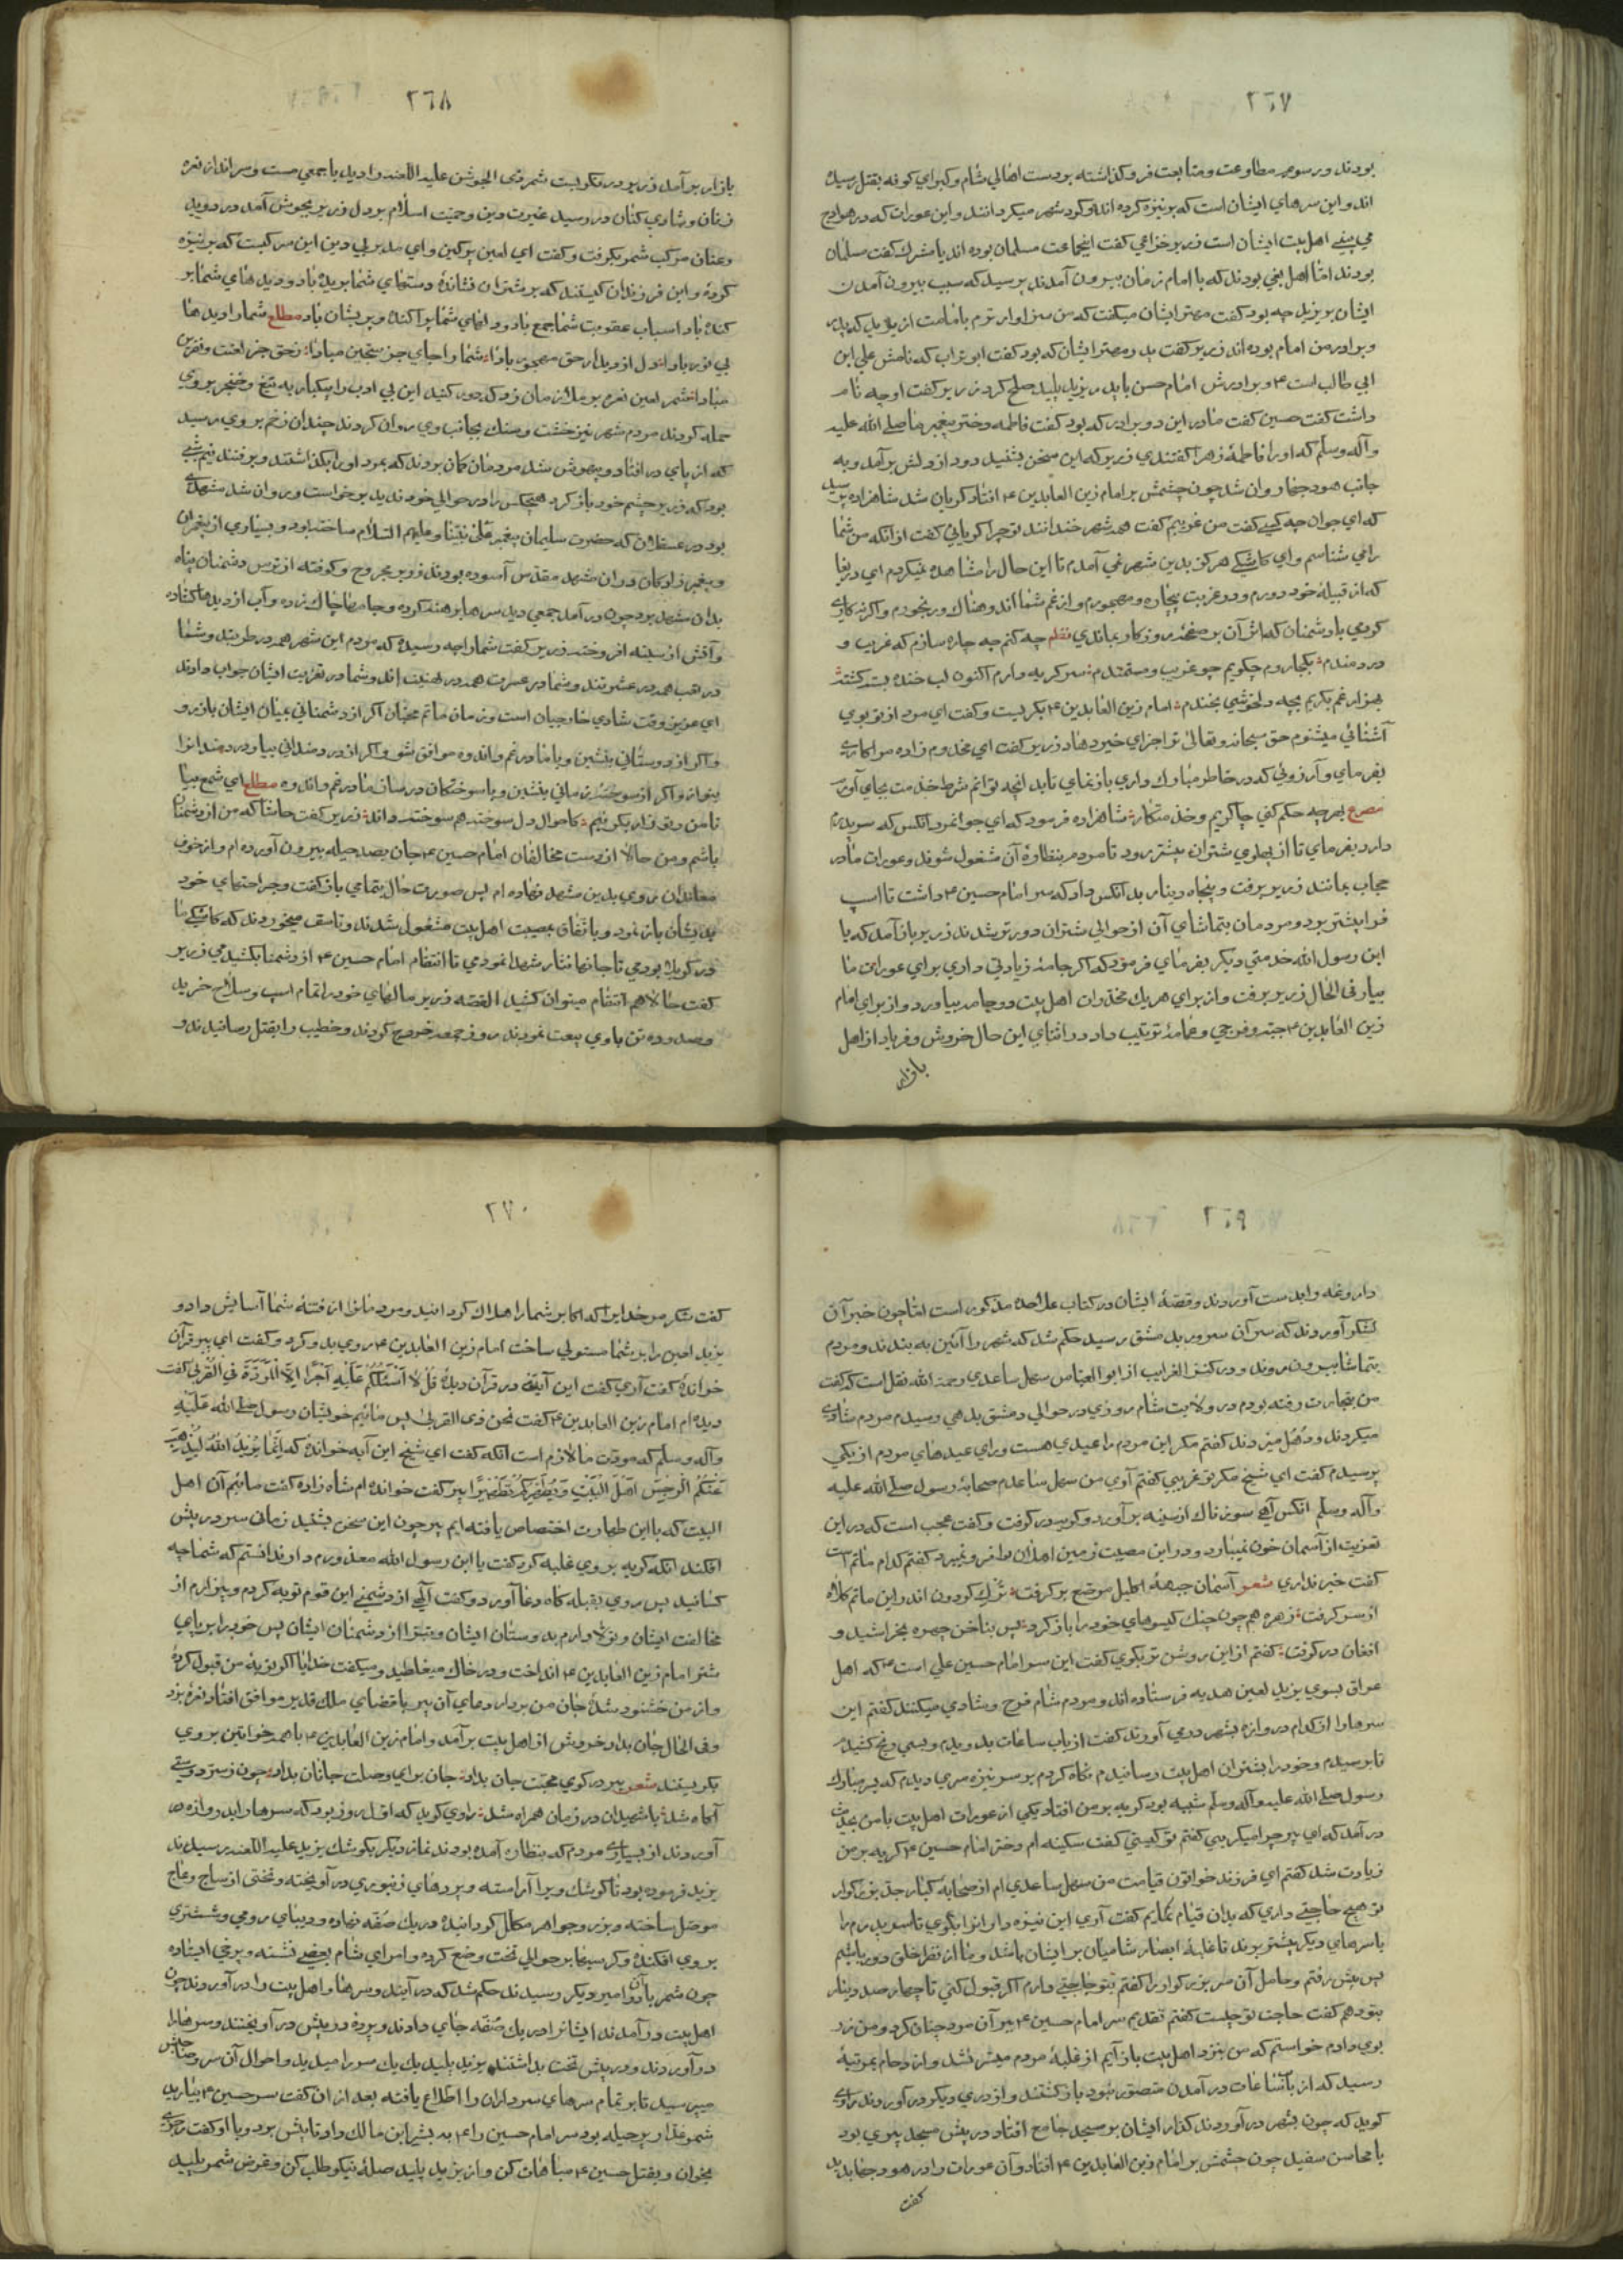 ٢٦٧
بودند ورسوم مطاوعت ومتابعت فرو گذاشته بودست اهالي شام وكبراي كوفه بقتل رسيده
اند واين سرهاي ايشان است كه بر نيزه كرده اند وگرد شهر ميگردانند واين عورات كه در هوادج
مي بيني اهل بيت ايشان است زرير خزاعي گفت اينجماعت مسلمان بوده اند يا مشرك گفت مسلمان
بودند امّا اهل بغي بودند كه با امام زمان بيرون آمدند پرسيد كه سبب بيرون آمدن
ايشان بر يزيد چه بود گفت مهتر ايشان ميگفت كه من سزاوارترم بامامت از يزيد كه پدر
وبرادر من امام بوده اند زرير گفت پدر مهتر ايشان كه بود گفت ابو تراب كه نامش علي ابن
ابي طالب است ع وبرادرش امام حسن با پدر يزيد پليد صلح كرد زرير گفت او چه نام
داشت گفت حسين گفت مادر اين دو برادر كه بود گفت فاطمه دختر پيغمبر ما صلي الله عليه
وآله وسلم كه او را فاطمهٔ زهرا گفتندي زرير كه اين سخن بشنيد دود از دلش بر آمد وبه
جانب هودجها روان شد چون چشمش بر امام زين العابدين ع افتاد گريان شد شاهزاده پرسيد
كه اي جوان چه كسي گفت من غريبم گفت همه شهر خندانند تو چرا گرياني گفت از انكه من شما
را مي شناسم واي كاشكي هرگز بدين شهر نمي آمدم تا اين حال را مشاهده نميكردم اي دريغا
كه از قبيله خود دورم ودر غربت بيچاره ومهجورم واز غم شما اندوهناك ورنجورم واگرنه كاري
كردمي با دشمنان كه اثر آن بر صفحهٔ روزگار بماندي نظم چه كنم چه چاره سازم كه غريب و
دردمندم بكجا روم چگويم چو غريب ومستمندم سر گريه دارم اكنون لب خنده بسته گشته
بهزار غم بگريم بچه دلخوشي بخندم امام زين العابدين ع بگريست وگفت اي مرد از تو بوي
آشنائي ميشنوم حق سبحانه وتعالى ترا جزاي خير دهاد زرير گفت اي مخدوم زاده مرا كاري
بفرماي وآرزوئي كه در خاطر مبارك داري بازنماي تا بد انچه توانم شرط خدمت بجاي آورم
مصرع بهرچه حكم كني چاكريم وخدمتكار شاهزاده فرمود كه اي جوانمرد انكس كه سر پدرم
دارد بفرماي تا از پهلوي شتران پيشتر رود تا مردم بنظارهٔ آن مشغول شوند وعورات ما در
حجاب بمانند زرير برفت وپنجاه دينار بد انكس داد كه سر امام حسين ع داشت تا اسپ
فرا پيشتر برد ومردمان بتماشاي آن از حوالي شتران دورتر شدند زرير باز آمد كه يا
ابن رسول الله خدمتي ديگر بفرماي فرمود كه اگر جامهٔ زيادتي داري براي عورات ما
بيار في الحال زرير برفت واز براي هر يك مخدرات اهل بيت دو جامه بياورد واز براي امام
زين العابدين ع جبّه وفرجي وعمامهٔ ترتيب داد در اثناي اين حال خروش وفرياد از اهل
بازار
٢٦٨
بازار بر آمد زرير در نگريست شمر ذي الجوشن عليه اللعنه را ديد با جمعي مست وسر انداز نعره
زنان وشادي كنان در رسيد غيرت دين وحميّت اسلام بر دل زرير بجوش آمد در دويد
وعنان مركب شمر بگرفت وگفت اي لعين پر كين واي مدبر بي دين اين سر كيست كه بر نيزه
كردهٔ واين فرزندان كيستند كه بر شتران نشاندهٔ دستهاي شما بريده باد وديدهاي شما بر
كنده باد اسباب عقوبت شما جمع باد ودلهاي شما پراكنده وپريشان باد مطلع شما را ديدها
بي نور بادا دل از ديدار حق مهجور بادا شما را جاي جز سجّين مبادا زحق جز لعنت ونفرين
مبادا شمر لعين نعره بر ملازمان زد كه دور كنيد اين بي ادب را بيكبار به تيغ وخنجر بر وي
حمله كردند مردم شهر نيز خشت وسنك بجانب وي روان كردند چندان زخم بر وي رسيد
كه از پاي در افتاد وبيهوش شد مردمان گمان بردند كه بمرد او را بگذاشتند وبرفتند نيم شبي
بود كه زرير چشم خود باز كرد هيچكس را در حوالي خود نديد برخواست وروان شد مشهدي
بود در عسقلان كه حضرت سليمان پيغمبر على نبيّنا وعليهم السّلام ساخته بود وبسياري از پيغمبران
وپيغمبر زادگان در ان مشهد مقدّس آسوده بودند زرير مجروح وكوفته از ترس دشمنان پناه
بدان مشهد برد چون در آمد جمعي ديد سرها برهنه كرده وجامها چاك زده وآب از ديدها گشاده
وآتش از سينه افروخته زرير گفت شما را چه رسيده كه مردم اين شهر همه در طربند وشما
در تعب همه در عشرتند وشما در عسرت همه در تهنيت اند وشما در تعزيت ايشان جواب دادند
اي عزيز وقت شادي خارجيان است وزمان ماتم محبّان اگر از دشمناني بميان ايشان باز رو
واگر از دوستاني بنشين وبا ما در غم واندوه موافق شو واگر از دردمنداني بيا ودردمندانرا
بنواز واگر از سوختهٔ زماني بنشين وبا سوختگان درساز ما در غم واندوه مطلع اي شمع بيا
تا من وتو زار بگرييم كاحوال دل سوخته هم سوخته داند زرير گفت حاشا كه من از دشمنان
باشم ومن حالا از دست مخالفان امام حسين ع جان بصد حيله بيرون آورده ام واز خوف
معاندان روي بدين مشهد نهاده ام پس صورت حال بتمامي باز گفت وجراحتهاي خود
بديشان باز نمود وباتّفاق بمصيبت اهل بيت مشغول شدند وتأسف ميخوردند كه كاشكي ما
در كربلا بودمي تا جانها نثار شهدا نمودمي تا انتقام امام حسين ع از دشمنا بكشيدمي زرير
گفت حالا هم انتقام ميتوان كشيد القصّه زرير مالهاي خود را تمام اسپ وسلاح خريد
وصد وده تن با وي بيعت نمودند روز جمعه خروج كردند وخطيب را بقتل رسانيدند و
٢٦٩
داروغه را بدست آوردند وقصّهٔ ايشان در كتاب علاحده مذكور است امّا چون خبر آن
لشكر آوردند كه سر آن سرور بدمشق رسيد حكم شد كه شهر را آئين به بندند ومردم
بتماشا بيرون روند ودر كنز الغرايب از ابو العبّاس سهل ساعدي رحمة الله نقل است كه گفت
من بتجارت رفته بودم در ولايت شام روزي در حوالي دمشق بدهي رسيدم مردم شادي
ميكردند ودهل ميزدند گفتم مگر اين مردم را عيدي هست وراي عيدهاي مردم از يكي
پرسيدم گفت اي شيخ مگر تو غريبي گفتم آري من سهل ساعدم صحابهٔ رسول صلي الله عليه
وآله وسلم انكس آهي سوزناك از سينه بر آورد وگريه در گرفت وگفت عجب است كه در اين
تعزيت از آسمان خون نميبارد ودر اين مصيبت زمين اهل آن را فرو نميبرد گفتم كدام ماتم است
گفت خبر نداري شعر آسمان جبههٔ اكليل مرصّع بر گرفت ترك گردون اند راين ماتم كلاه
از سر گرفت زهره هم چون چنك گيسوهاي خود را باز كرد پس بناخن چهره بخراشيد و
افغان در گرفت گفتم از اين روشن تر بگوي گفت اين سر امام حسين علي است ع كه اهل
عراق بسوي يزيد لعين هديه فرستاده اند ومردم شام فرح وشادي ميكنند گفتم اين
سرها را از كدام دروازه بشهر در مي آورند گفت از باب ساعات بدويدم وبسي رنج كشيدم
تا برسيدم وخود را بشتران اهل بيت رسانيدم نگاه كردم بر سر نيزه سري ديدم كه بسر مبارك
رسول صلي الله عليه وآله وسلم شبيه بود گريه بر من افتاد يكي از عورات اهل بيت با من بحديث
در آمد كه اي پير چرا ميگريي گفتم تو كيستي گفت سكينه ام دختر امام حسين ع گريه بر من
زيادت شد گفتم اي فرزند خواتون قيامت من سهل ساعدي ام از صحابه كبار جدّ بزرگوار
تو هيچ حاجتي داري كه بدان قيام نمايم گفت آري اين نيزه دارانرا بگوي تا سر پدرم را
با سرهاي ديگر پيشتر برند تا غلبهٔ ابصار شاميان بر ايشان باشد وما از نظر خلق دور باشيم
پس پيش رفتم وحامل آن سر بزرگوار را گفتم بتو حاجتي دارم اگر قبول كني تا چهار صد دينار
بتو دهم گفت حاجت تو چيست گفتم تقديم سر امام حسين ع ببر آن مرد چنان كرد ومن زر
بوي دادم خواستم كه من بنزد اهل بيت باز آيم از غلبهٔ مردم ميسّر نشد واز دحام بمرتبهٔ
رسيد كه از باب ساعات در آمدن متصوّر نبود باز گشتند واز دري ديگر در آوردند راوي
گويد كه چون بشهر در آوردند گذار ايشان بر مسجد جامع افتاد در پيش مسجد پيري بود
با محاسن سفيد چون چشمش بر امام زين العابدين ع افتاد وآن عورات را در هودجها بديد
گفت
٢٧٠
گفت شكر مر خدايرا كه اكابر شما را هلاك گردانيد ومردمانرا از فتنهٔ شما آسايش داد و
يزيد لعين را بر شما مستولي ساخت امام زين العابدين ع روي بدو كرد وگفت اي پير قرآن
خواندهٔ گفت آري گفت اين آيت در قرآن ديدهٔ قُل لا اَسئلُكُم عَلَيهِ اَجرًا اِلاّ المَوَدَّةَ فِي القُربى گفت
ديده ام امام زين العابدين ع گفت نحن ذي القربى پس مائيم خويشان رسول صلي الله عَلَيْهِ
وآله وسلم كه مودّت ما لازم است انگه گفت اي شيخ اين آيه خواندهٔ كه اِنَّما يُريدُ اللهُ لِيُذهِبَ
عَنكُمُ الرِّجسَ اَهلَ البَيتِ وَيُطَهِّرَكُم تَطهيرًا پير گفت خوانده ام شاه زاده گفت مائيم آن اهل
البيت كه باين طهارت اختصاص يافته ايم پير چون اين سخن بشنيد زماني سر در پيش
افكند انگه گريه بر وي غلبه كرد گفت يا ابن رسول الله معذورم دار ندانستم كه شما چه
كسانيد پس روي بقبله گاه دعا آورد وگفت الهي از دشمني اين قوم توبه كردم وبيزارم از
مخالفت ايشان وتولاّ دارم بدوستان ايشان وتبرّا از دشمنان ايشان پس خود را بر پاي
شتر امام زين العابدين ع انداخت ودر خاك ميغلطيد وميگفت خدايا اگر توبهٔ من قبول كردهٔ
واز من خشنود شدهٔ جان من بردار دعاي آن پير با قضاي ملك قدير موافق افتاد نعرهٔ بزد
وفي الحال جان بداد خروش از اهل بيت بر آمد وامام زين العابدين ع با همه خواتين بر وي
بگريستند شعر پير در كوي محبّت جان بداد جان براي وصلت جانان بداد چون زسرّ دوستي
آگاه شد با شهيدان در زمان همراه شد راوي گويد كه اوّل روز بود كه سرها را بدروازه
آوردند از بسياري مردم كه بنظاره آمده بودند نماز ديگر بكوشك يزيد عليه اللعنه رسيدند
يزيد فرموده بود تا كوشك ويرا آراسته وپردهاي زنبوري در آويخته وتختي از ساج وعاج
موصّل ساخته وبزر وجواهر مكلل گردانيده در يك صفّه نهاده وديباي رومي وششتري
بر وي افكنده وكرسيها بر حوالي تخت وضع كرده وامراي شام بعضي نشسته وبرخي ايستاده
چون شمر با آن دو امير ديگر رسيدند حكم شد كه در آيند وسرها واهل بيت را در آوردند چون
اهل بيت در آمدند ايشانرا در يك صفّه جاي دادند وپرده در پيش در آويختند وسرها را
در آوردند ودر پيش تخت بداشتند يزيد پليد يك يك سر را ميديد واحوال آن سر وصاحبش
ميپرسيد تا بر تمام سرهاي سرداران را اطّلاع يافته بعد از ان گفت سر حسين ع بياريد
شمر غدّار پر حيله بود سر امام حسين را ع به بشير ابن مالك داد تا پيش برد وبا او گفت رجزي
بخوان وبقتل حسين ع مباهات كن واز يزيد پليد صلهٔ نيكو طلب كن وغرض شمر پليد